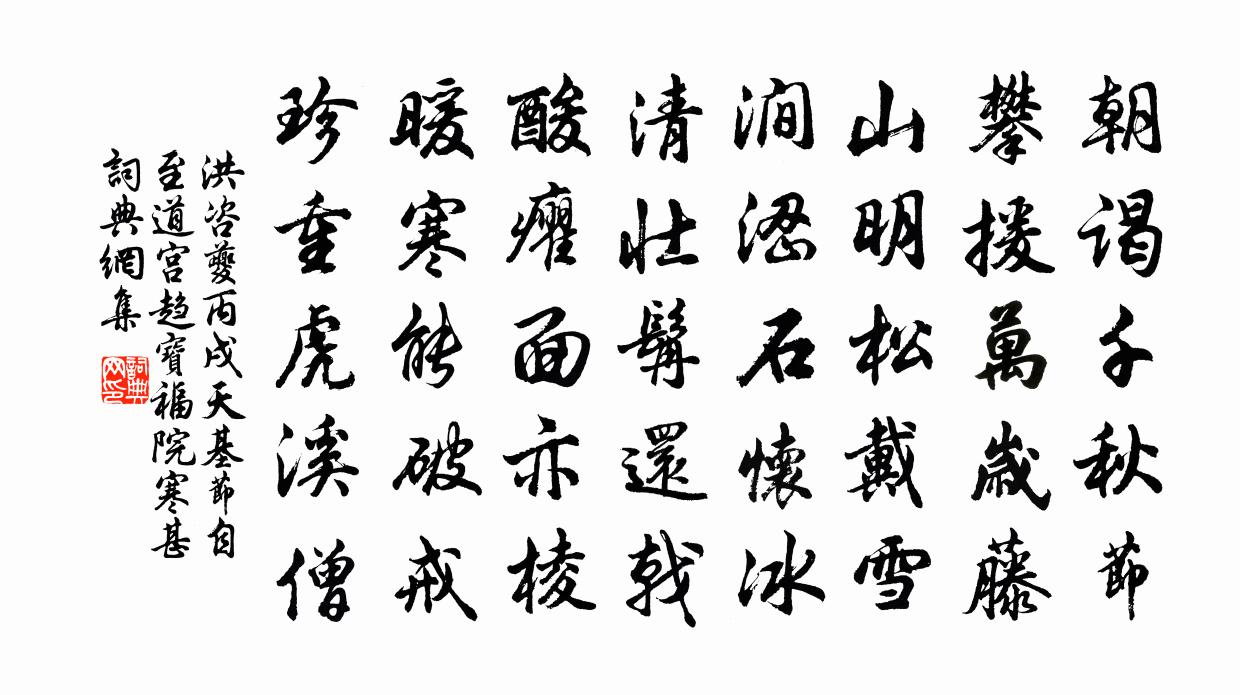 朝謁千秋節
攀援萬歲藤
山明松戴雪
澗涩石懷冰
清壯髯還戟
酸癯面亦棱
暖寒能破戒
珍重虎溪僧
洪咨夔丙戌天基節自
至道宮趋寶福院寒甚
詞典網集
詞典网印